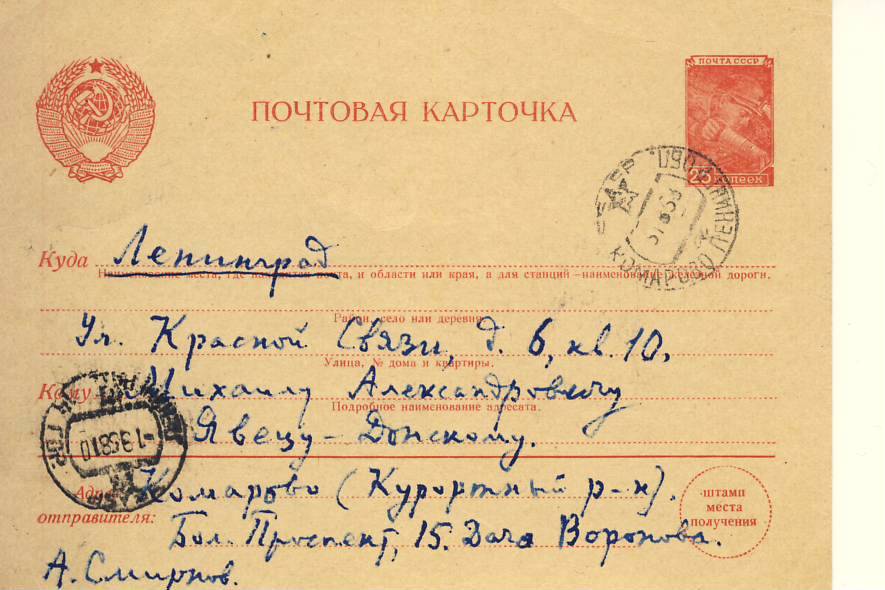 ПОЧТА СССР
ПОЧТОВАЯ КАРТОЧКА
25 КОПЕЕК
КОМАРОВО ЛЕНИН
Куда Ленинград
Наименование места, где находится почта, и области или края, а для станций – наименование железной дороги.
Район, село или деревня.
Ул. Красной Связи, д. 6, кв. 10.
Улица, № дома и квартиры.
Кому Михаилу Александровичу
Подробное наименование адресата.
Явецу-Донскому.
Адрес отправителя: Комарово (Курортный р-н).
Бол. Проспект, 15. Дача Воронова.
А. Смирнов.
штамп
места
получения